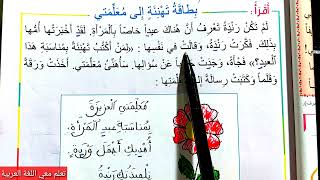 أَقْرَأُ :
بِطَاقَةُ تَهْنِئَةٍ إِلَى مُعَلِّمَتِي
لَمْ تَكُنْ رَنْدَةُ تَعْرِفُ أَنَّ هُنَاكَ عِيداً خَاصّاً بِالْمَرْأَةِ. لَقَدْ أَخْبَرَتْهَا أُمُّهَا
بِذَلِكَ. فَكَّرَتْ رَنْدَةُ، وَقَالَتْ فِي نَفْسِهَا : «لِمَنْ أَكْتُبُ تَهْنِئَةً بِمُنَاسَبَةِ هَذَا
الْعِيدِ؟» فَجْأَةً، وَجَدَتْ جَوَاباً عَنْ سُؤَالِهَا. سَأُهَنِّئُ مُعَلِّمَتِي. أَخَذَتْ وَرَقَةً
وَقَلَماً وَكَتَبَتْ رِسَالَةً إِلَى مُعَلِّمَتِهَا:
مُعَلِّمَتِي الْعَزِيزَةَ
بِمُنَاسَبَةِ عِيدِ الْمَرْأَةِ،
أُهْدِيكِ أَجْمَلَ وَرْدَةٍ،
تِلْمِيذَتُكِ رَنْدَةُ
تعلم معي اللغة العربية